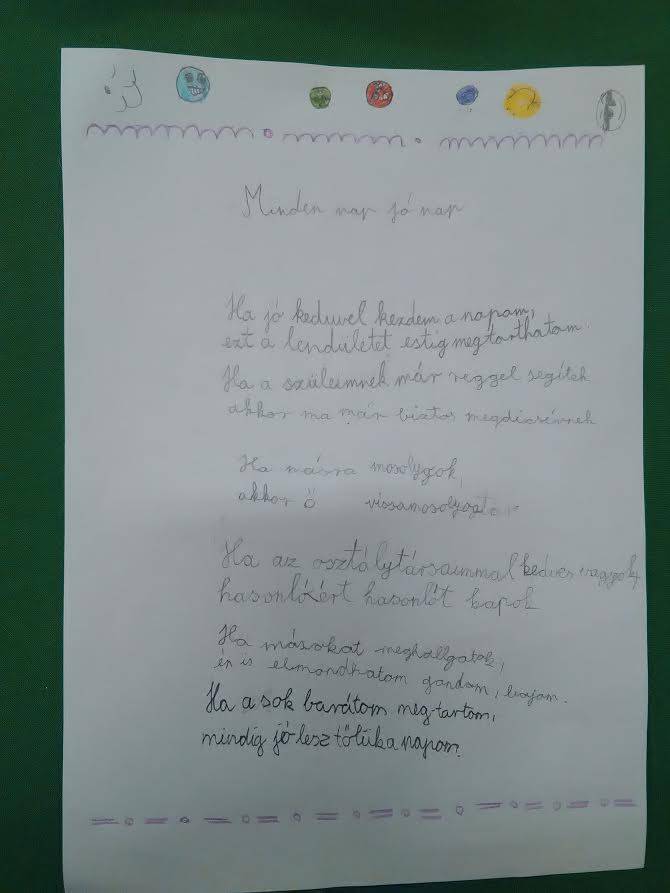 Minden nap jó nap
Ha jó kedvvel kezdem a napom,
ezt a lendületet estig megtarthatom.
Ha a szüleimnek már reggel segítek
akkor ma már biztos megdicsérnek
Ha másra mosolygok,
akkor ő visszamosolyog
Ha az osztálytársaimmal kedves vagyok,
hasonlóért hasonlót kapok
Ha másokat meghallgatok,
én is elmondhatom gondom, bajom.
Ha a sok barátom megtartom,
mindig jó lesz tőlük a napom.